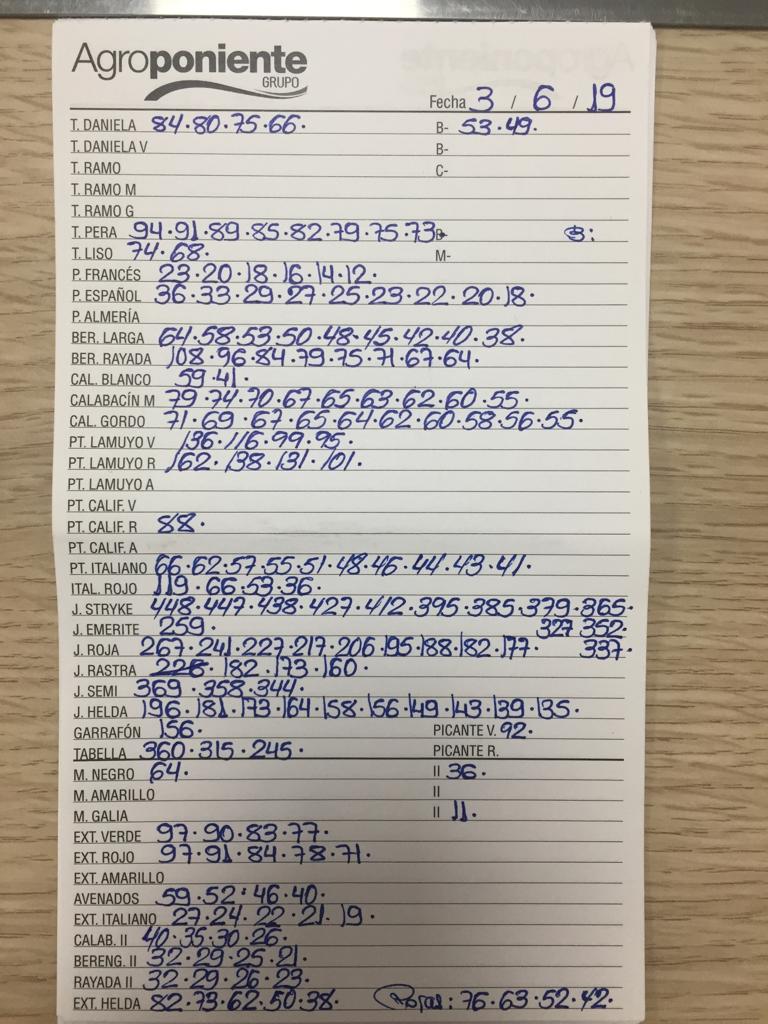 Agroponiente
GRUPO
Fecha 3 / 6 / 19
T. DANIELA 84.80.75.66. B- 53.49.
T. DANIELA V B-
T. RAMO C-
T. RAMO M
T. RAMO G
T. PERA 94.91.89.85.82.79.75.73 B- B:
T. LISO 74.68. M-
P. FRANCÉS 23.20.18.16.14.12.
P. ESPAÑOL 36.33.29.27.25.23.22.20.18.
P. ALMERÍA
BER. LARGA 64.58.53.50.48.45.42.40.38.
BER. RAYADA 108.96.84.79.75.71.67.64.
CAL. BLANCO 59.41.
CALABACÍN M 79.74.70.67.65.63.62.60.55.
CAL. GORDO 71.69.67.65.64.62.60.58.56.55.
PT. LAMUYO V 136.116.99.95.
PT. LAMUYO R 162.138.131.101.
PT. LAMUYO A
PT. CALIF. V
PT. CALIF. R 88.
PT. CALIF. A
PT. ITALIANO 66.62.57.55.51.48.46.44.43.41.
ITAL. ROJO 119.66.53.36.
J. STRYKE 448.447.438.427.412.395.385.379.365.
J. EMERITE 259. 327 352.
J. ROJA 267.241.227.217.206.195.188.182.177. 337.
J. RASTRA 226.182.173.160.
J. SEMI 369.358.344.
J. HELDA 196.181.173.164.158.156.149.143.139.135.
GARRAFÓN 156. PICANTE V. 92.
TABELLA 360.315.245. PICANTE R.
M. NEGRO 64. II 36.
M. AMARILLO II
M. GALIA II 11.
EXT. VERDE 97.90.83.77.
EXT. ROJO 97.91.84.78.71.
EXT. AMARILLO
AVENADOS 59.52.46.40.
EXT. ITALIANO 27.24.22.21.19.
CALAB. II 40.35.30.26.
BERENG. II 32.29.25.21.
RAYADA II 32.29.26.23.
EXT. HELDA 82.73.62.50.38. Rojas: 76.63.52.42.